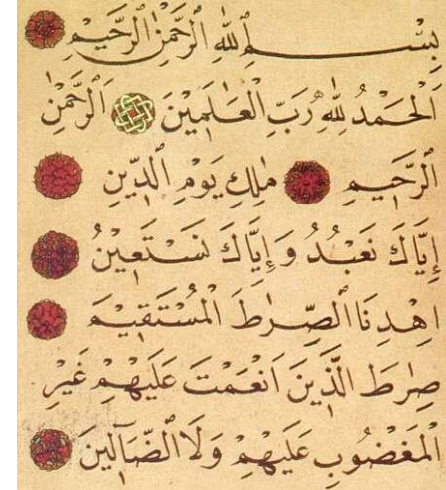 بِسْمِ ٱللَّهِ ٱلرَّحْمٰنِ ٱلرَّحِيمِ
اَلْحَمْدُ لِلّٰهِ رَبِّ الْعَالَمِينَ اَلرَّحْمٰنِ
اَلرَّحِيمِ مٰلِكِ يَوْمِ الدِّينِ
إِيَّاكَ نَعْبُدُ وَإِيَّاكَ نَسْتَعِينُ
اِهْدِنَا الصِّرَاطَ الْمُسْتَقِيمَ
صِرَاطَ الَّذِينَ اَنْعَمْتَ عَلَيْهِمْ غَيْرِ
الْمَغْضُوبِ عَلَيْهِمْ وَلَا الضَّآلِّينَ